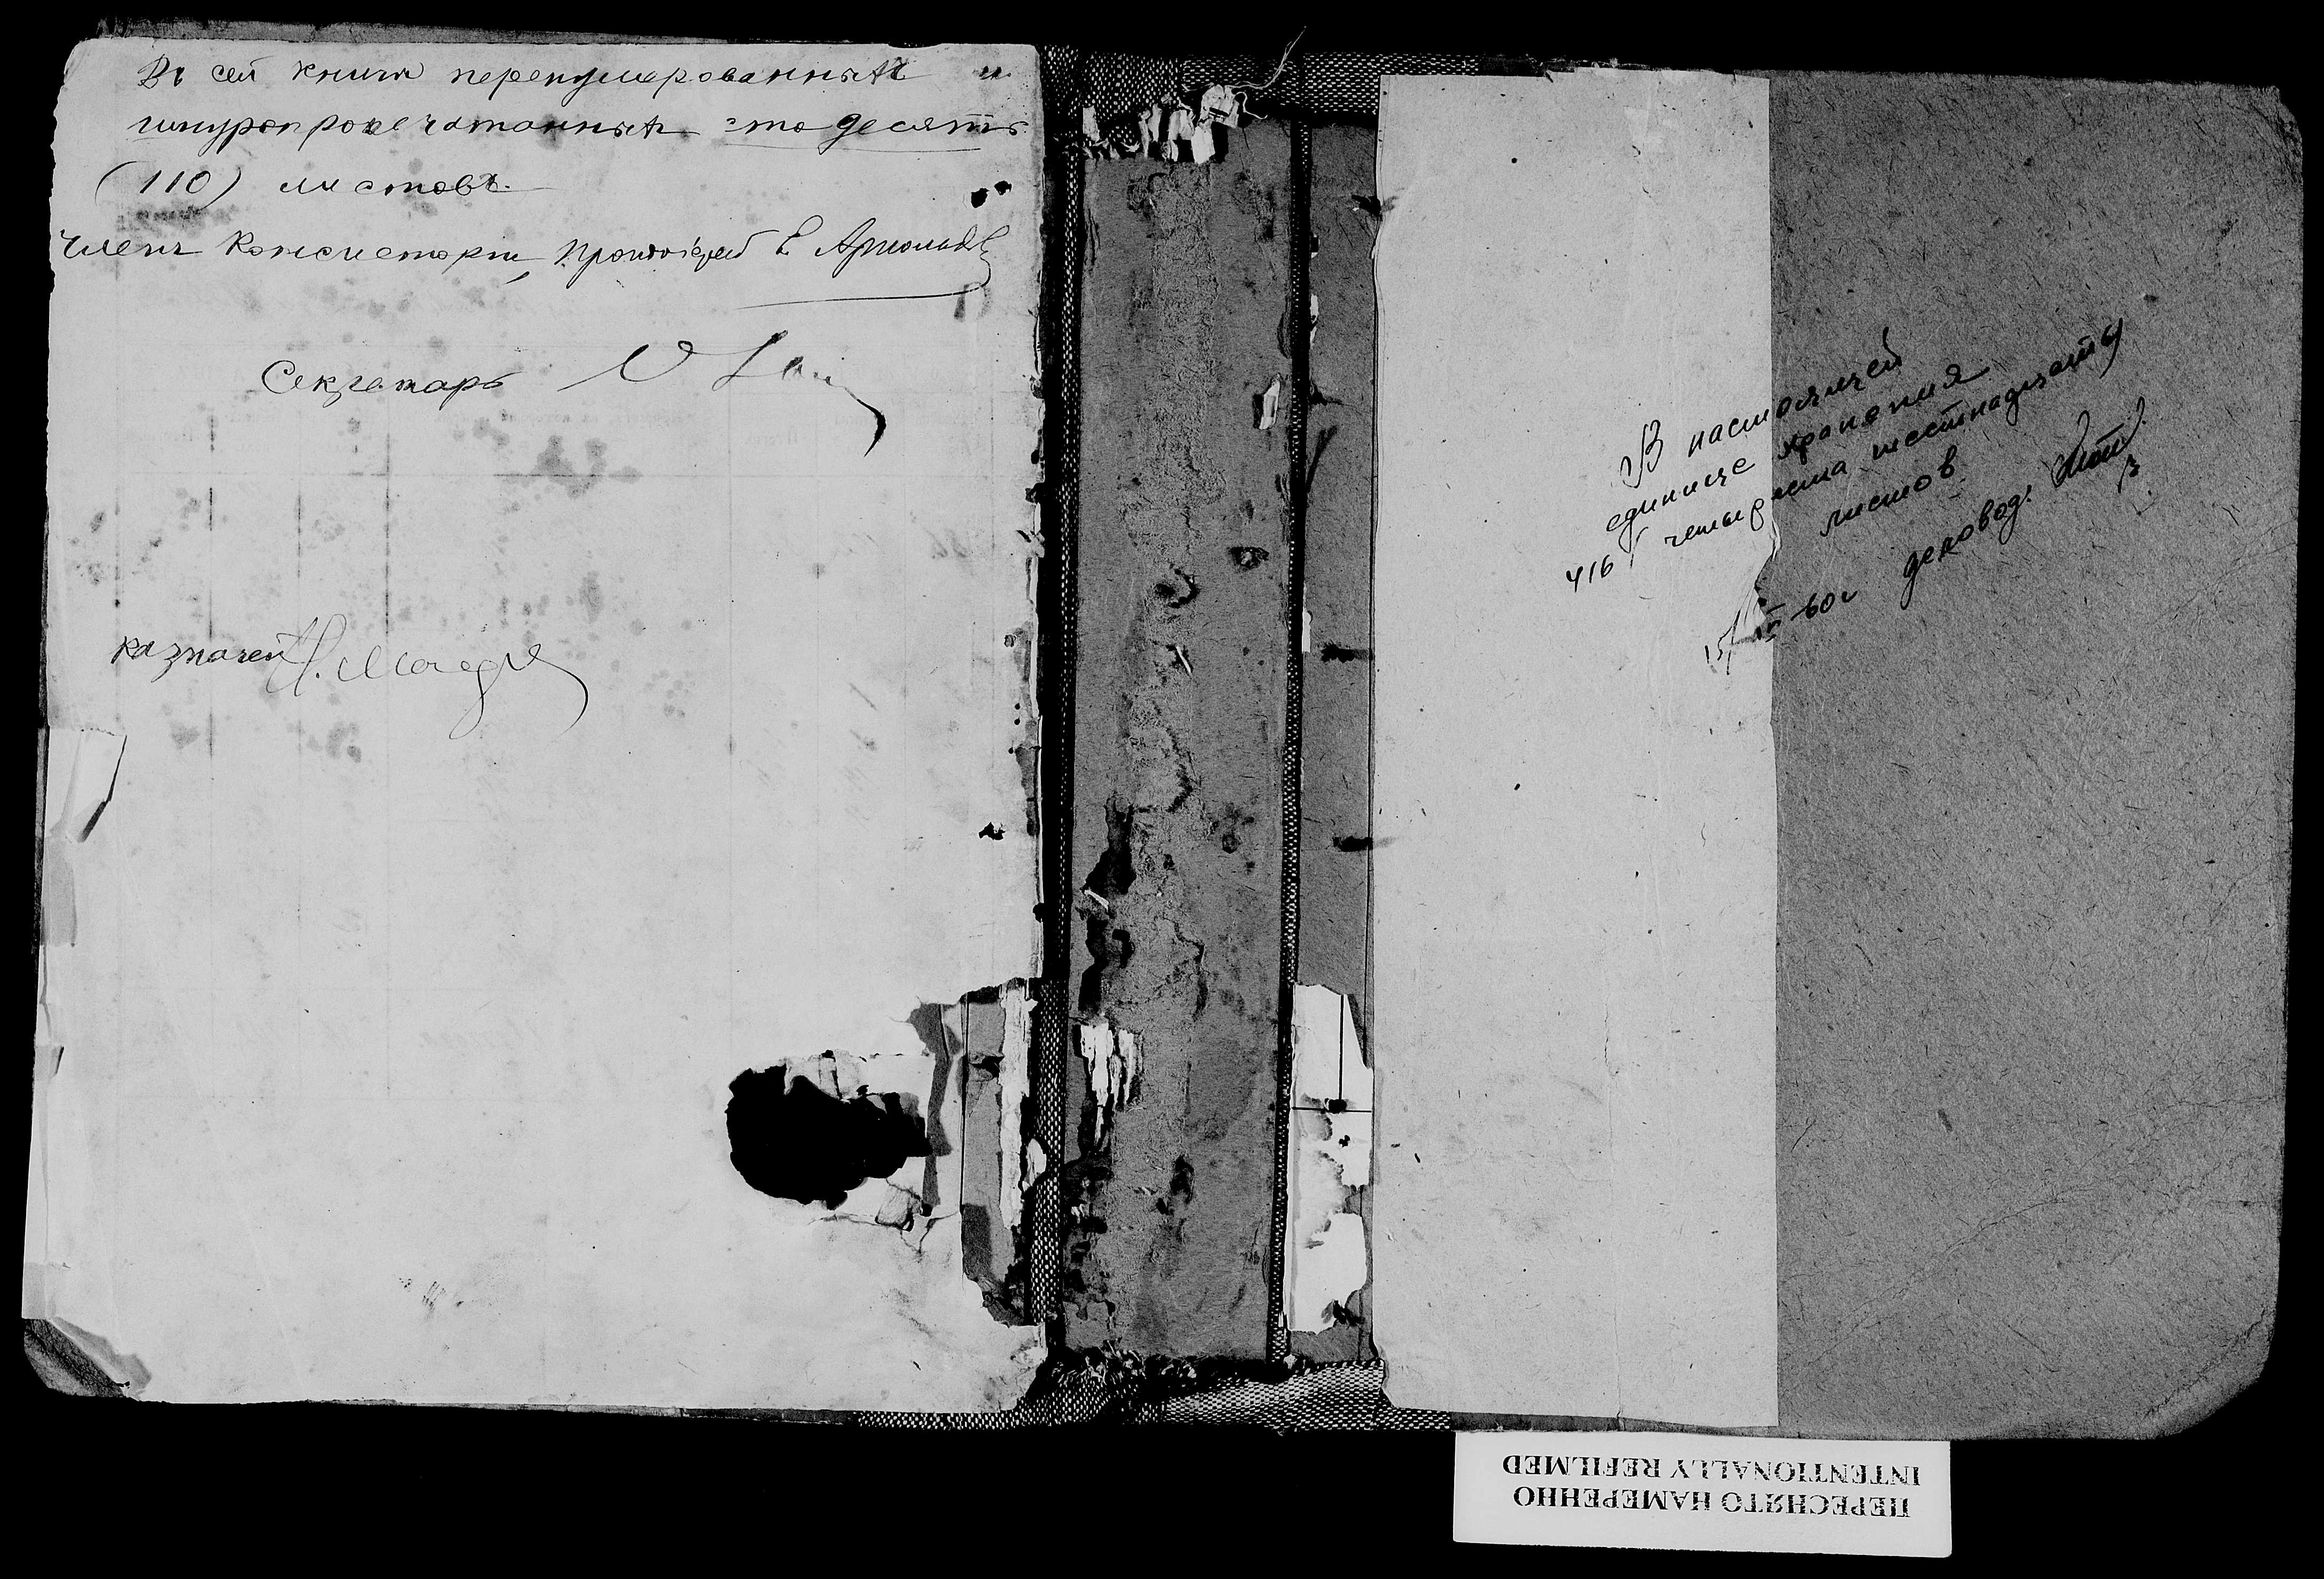 Въ сей книги перенумерованныхъ и
шнуропропечатанныхъ сто десять
(110) листовъ.
Членъ Консисторіи, протоіерей Е Арнольдовъ
Секретарь
казначей Н.
В настоящей
единице хранения
416 / четыреста шестнадцать)
листов
60г деловод.
ПЕРЕСНЯТО НАМЕРЕННО
INTENTIONALLY REFILMED